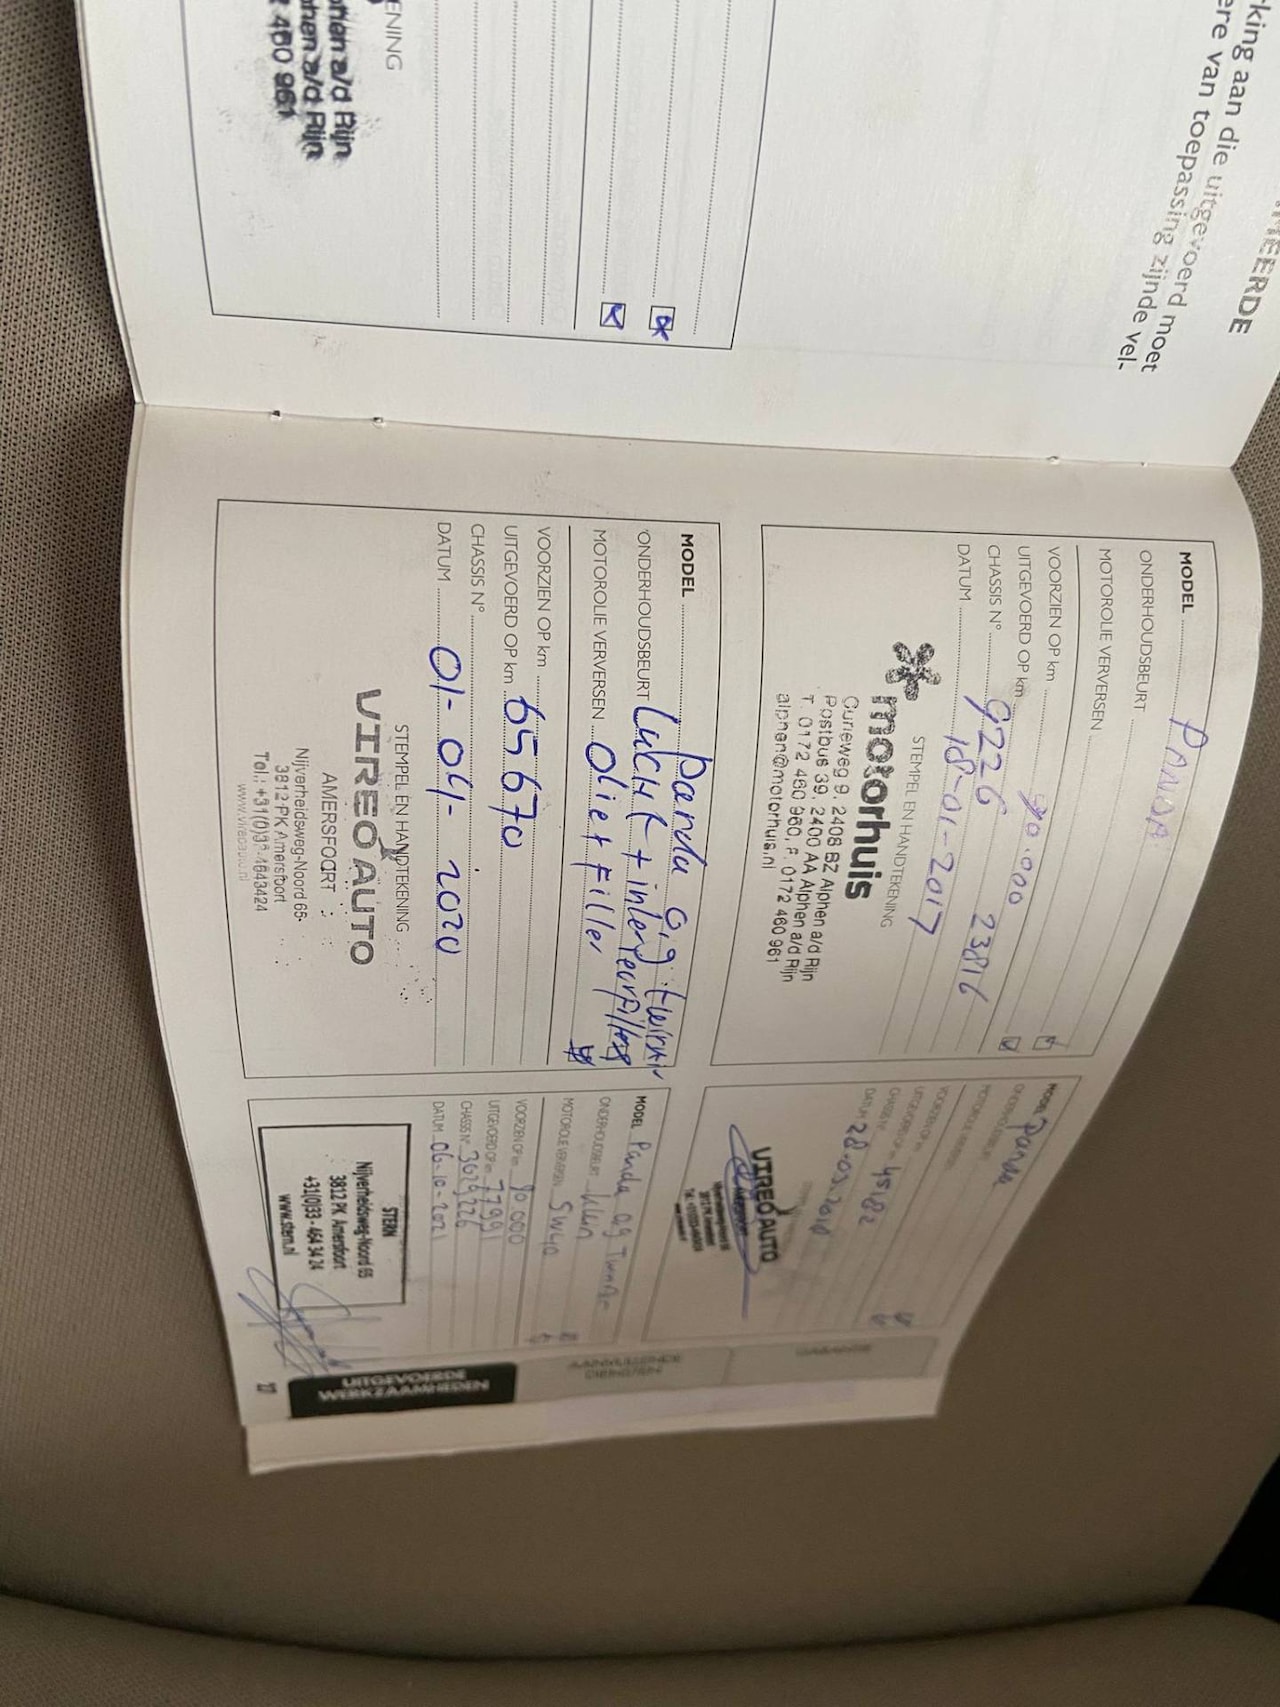 ENING
hen a/d Rijn
hen a/d Rijn
460 961
MEERDE
king aan die uitgevoerd moet
ere van toepassing zijnde vel-
MODEL PANDA
ONDERHOUDSBEURT
MOTOROLIE VERVERSEN
VOORZIEN OP km 90.000
UITGEVOERD OP km 23816
CHASSIS N° 9226
DATUM 18-01-2017
STEMPEL EN HANDTEKENING
motorhuis
Curieweg 9, 2408 BZ Alphen a/d Rijn
Postbus 39, 2400 AA Alphen a/d Rijn
T. 0172 460 960, F. 0172 460 961
alphen@motorhuis.nl
MODEL Panda
ONDERHOUDSBEURT
MOTOROLIE VERVERSEN
VOORZIEN OP km
UITGEVOERD OP km 45182
CHASSIS N°
DATUM 28.03.2018
VIREO AUTO
MODEL Panda 0,9 twinair
ONDERHOUDSBEURT Lucht + interieurfilter
MOTOROLIE VERVERSEN Olie + Filter
VOORZIEN OP km
UITGEVOERD OP km 65670
CHASSIS N°
DATUM 01-04-2020
STEMPEL EN HANDTEKENING
VIREO AUTO
AMERSFOORT
Nijverheidsweg-Noord 65
3812 PK Amersfoort
Tel.: +31(0)33-4643424
MODEL Panda 0,9 TwinAir
ONDERHOUDSBEURT klein
MOTOROLIE VERVERSEN 5W40
VOORZIEN OP km 90.000
UITGEVOERD OP km 77991
CHASSIS N° 3629226
DATUM 06-10-2021
STERN
Nijverheidsweg-Noord 65
3812 PK Amersfoort
+31(0)33 - 464 34 24
www.stern.nl
UITGEVOERDE
WERKZAAMHEDEN
AANVULLENDE
DIENSTEN
GARANTIE
27